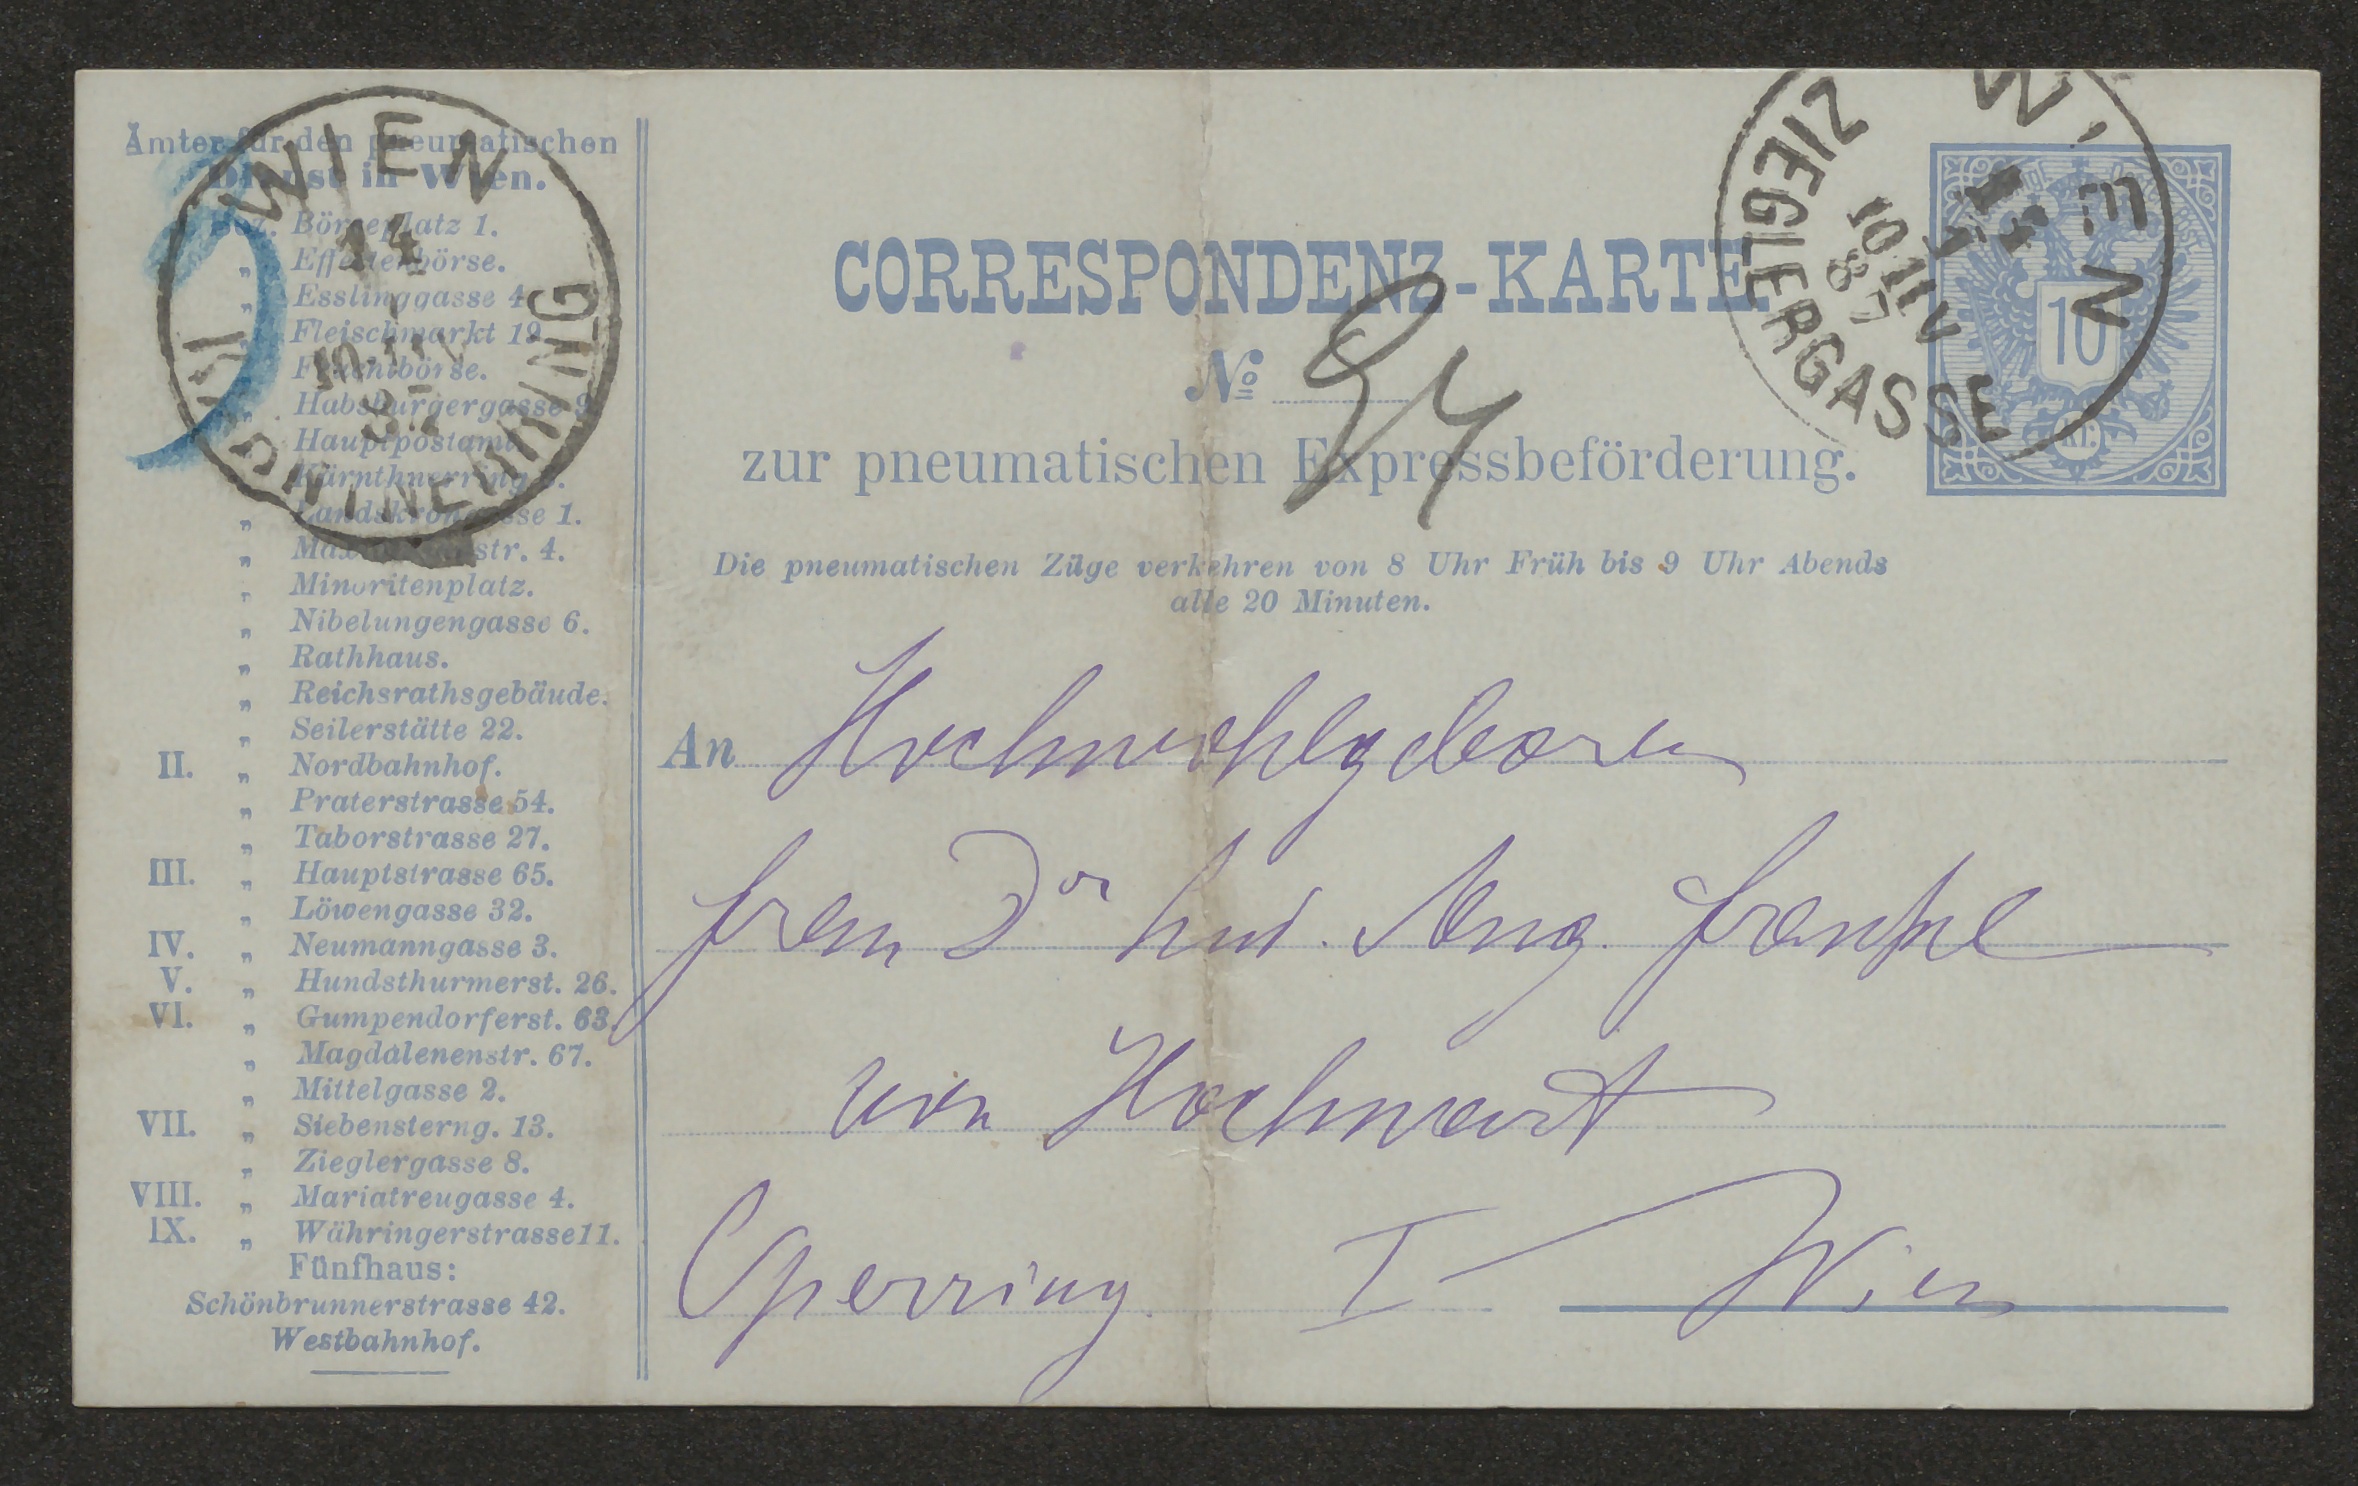 Ämter für den pneumatischen
Dienst in Wien.
Bez. Börseplatz 1.
„ Effectenbörse.
„ Esslinggasse 4
„ Fleischmarkt 19
„ Fruchtbörse.
„ Habsburgergasse 9
„ Hauptpostamt
„ Kärnthnerring
„ Landskrongasse 1.
„ str. 4.
„ Minoritenplatz.
„ Nibelungengasse 6.
„ Rathhaus.
„ Reichsrathsgebäude.
„ Seilerstätte 22.
II. „ Nordbahnhof.
„ Praterstrasse 54.
„ Taborstrasse 27.
III. „ Hauptstrasse 65.
„ Löwengasse 32.
IV. „ Neumanngasse 3.
V. „ Hundsthurmerst. 26.
VI. „ Gumpendorferst. 63.
„ Magdalenenstr. 67.
„ Mittelgasse 2.
VII. „ Siebensterng. 13.
„ Zieglergasse 8.
VIII. „ Mariatreugasse 4.
IX. „ Währingerstrasse 11.
Fünfhaus:
Schönbrunnerstrasse 42.
Westbahnhof.
WIEN
KÄRNTHNERRING
WIEN
ZIEGLERGASSE
10 IV
87
10
KR.
CORRESPONDENZ-KARTE
No 24
zur pneumatischen Expressbeförderung.
Die pneumatischen Züge verkehren von 8 Uhr Früh bis 9 Uhr Abends
alle 20 Minuten.
An Hochwohlgeboren
Frau Dr Lud. Aug. Frankl
von Hochwart
Opernring. I Wien